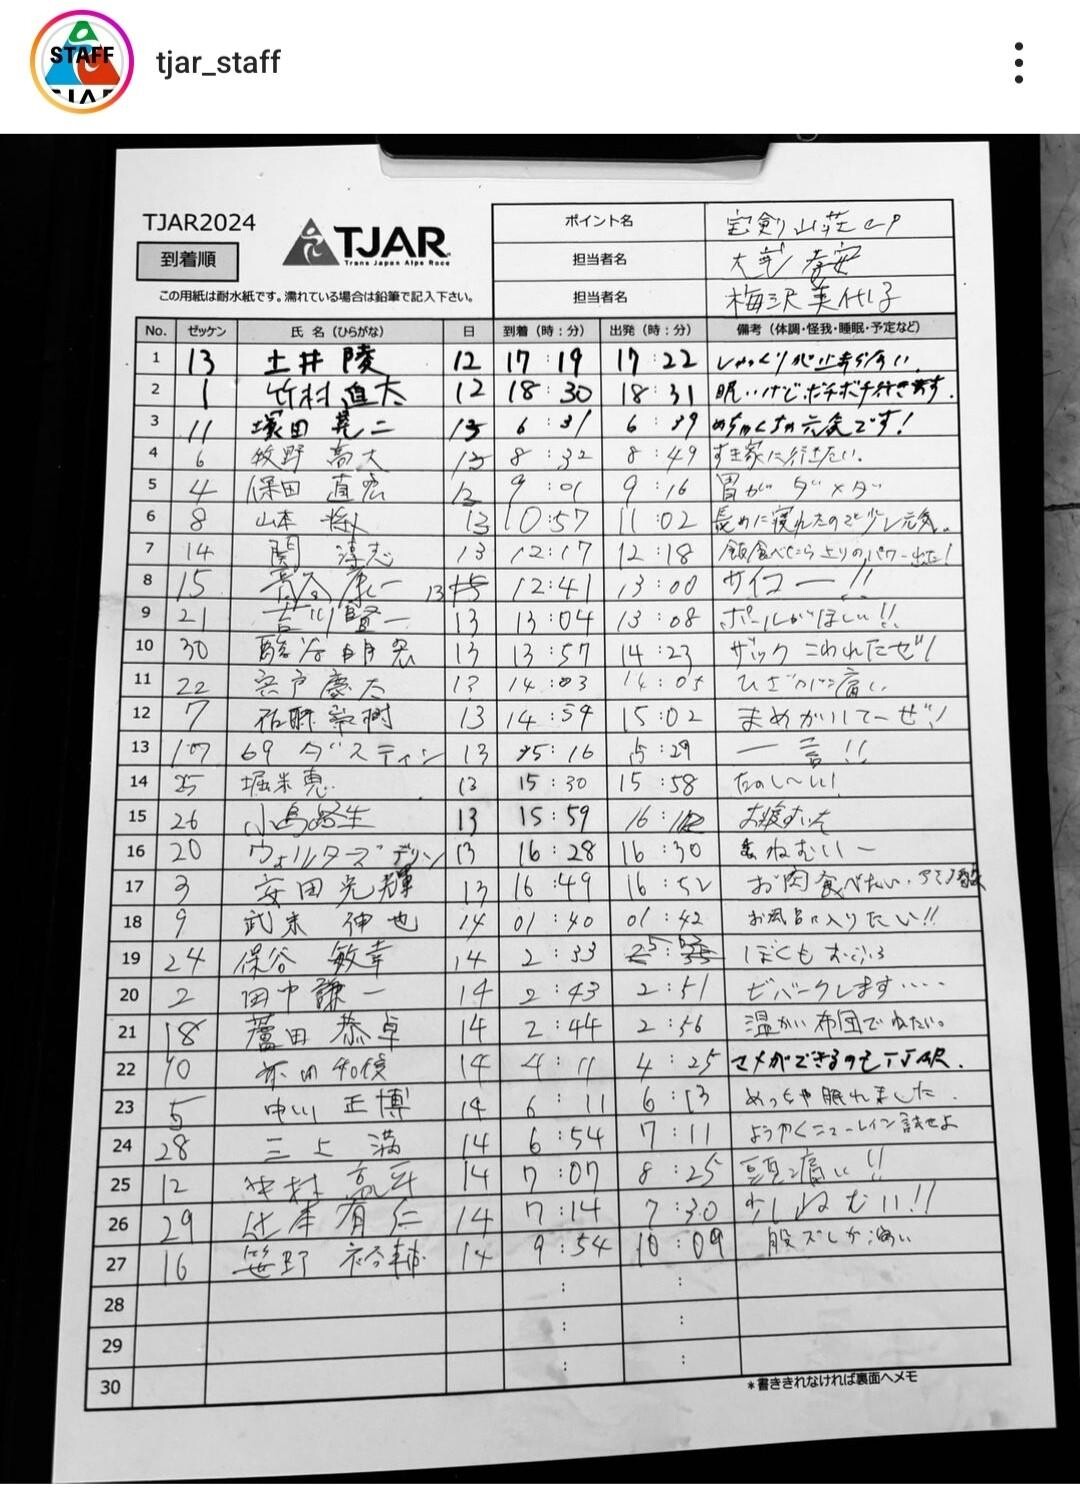 tjar_staff
STAFF
TJAR
TJAR2024
到着順
TJAR
Trans Japan Alps Race
この用紙は耐水紙です。濡れている場合は鉛筆で記入下さい。
ポイント名 宝剣山荘CP
担当者名
担当者名 梅沢美代子
No. ゼッケン 氏 名 (ひらがな) 日 到着 (時:分) 出発 (時:分) 備考 (体調・怪我・睡眠・予定など)
1 13 土井 陵 12 17:19 17:22 しゃっくりが止まらない
2 1 竹村直太 12 18:30 18:31 眠いけどボチボチ行きます.
3 11 塚田 晃二 13 6:31 6:39 めちゃくちゃ元気です!
4 6 牧野 高大 13 8:32 8:49 すき家に行きたい.
5 4 保田 直宏 13 9:01 9:16 胃がダメダ
6 8 山本 13 10:57 11:02 長めに寝れたので少し元気.
7 14 関 淳志 13 12:17 12:18 飯食べたら上りのパワー出た!
8 15 13 12:41 13:00 サイコー!!
9 21 賢一 13 13:04 13:08 ポールがほしい!!
10 30 13 13:57 14:23 ザックこわれたぜ!
11 22 宍戸慶太 13 14:03 14:05 ひざが痛い
12 7 13 14:59 15:02 まめがいてーぜ!
13 107 69 ダスティン 13 15:16 15:29 一言!!
14 25 堀米 恵 13 15:30 15:58 たのし〜い!
15 26 小島 13 15:59 16: お腹すいた
16 20 ウォルターズ デリン 13 16:28 16:30 ねむいー
17 3 安田光輝 13 16:49 16:52 お肉食べたい.
18 9 武末 伸也 14 01:40 01:42 お風呂に入りたい!!
19 24 保谷 敏幸 14 2:33 ぼくもおふろ
20 2 田中謙一 14 2:43 2:51 ビバークします‥‥
21 18 蘆田 恭卓 14 2:44 2:56 温かい布団でねたい。
22 10 14 4:11 4:25 マメができるのもTJAR.
23 5 中川 正博 14 6:11 6:13 めっちゃ眠れました.
24 28 三上 満 14 6:54 7:11 ようやくニューレイン試せよ
25 12 中村 14 7:07 8:25 頭痛い!!
26 29 辻本有仁 14 7:14 7:30 少しねむい!!
27 16 笹野 裕輔 14 9:54 10:09 股ズレが痛い
28 : :
29 : :
30 : :
*書ききれなければ裏面へメモ